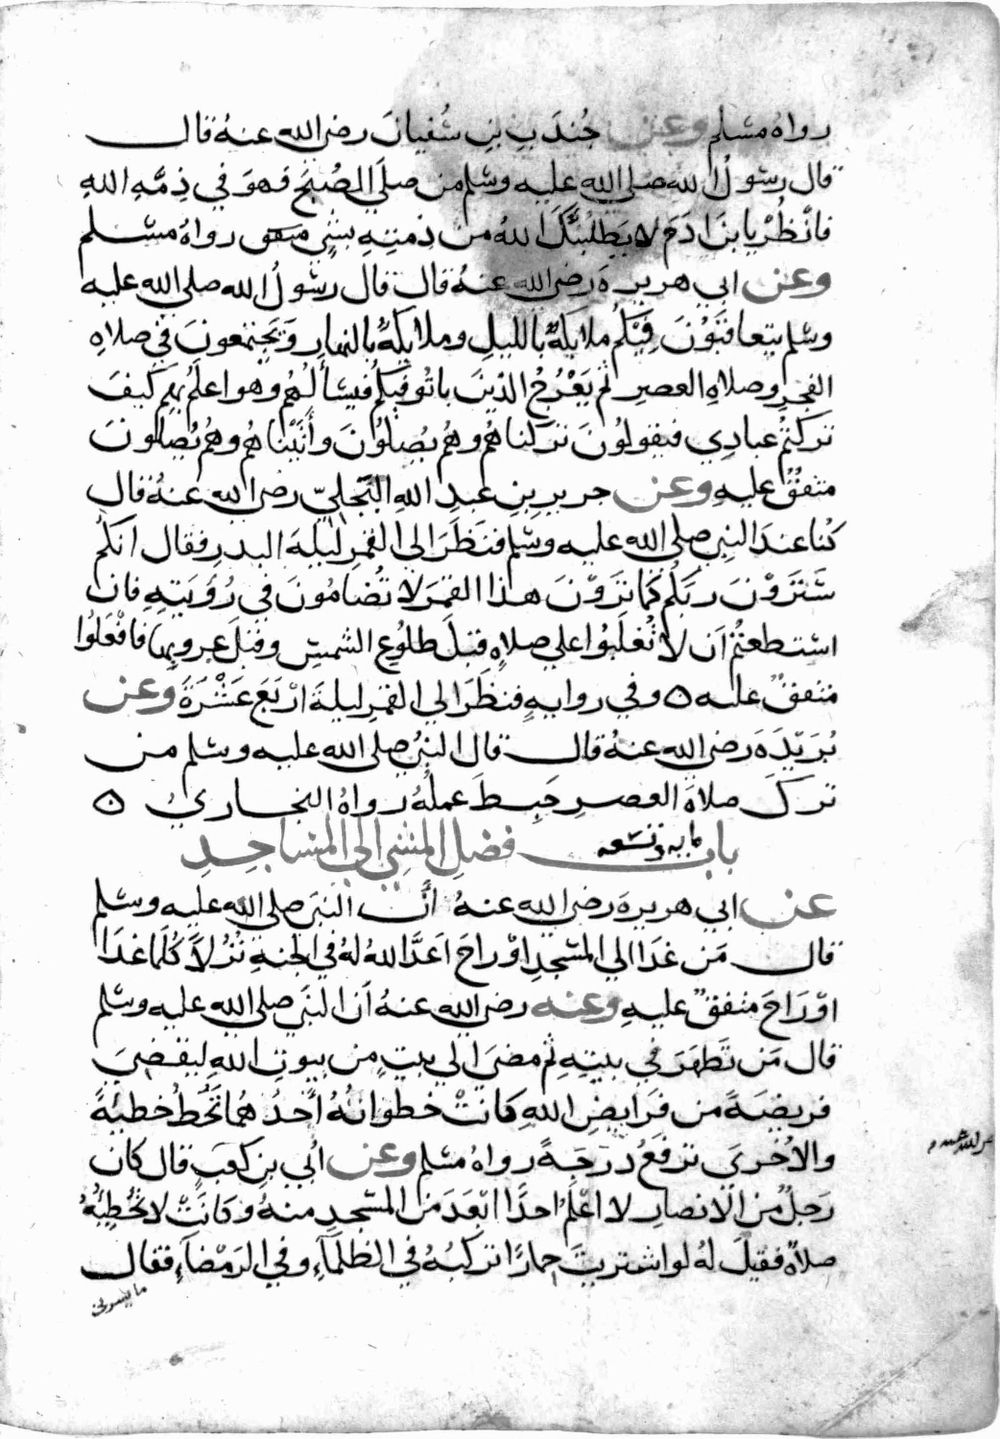 رواه مسلم وعن جُندَبِ بنِ سُفيانَ رضي الله عنهُ قال
قال رسولُ اللهِ صلى الله عليه وسلم من صلَّى الصُبحَ فهوَ في ذِمَّةِ اللهِ
فانْظُرْ يا بنَ ادَمَ لا يَطلُبَنَّكَ اللهُ من ذِمتِهِ بشيءٍ رواهُ مسلم
وعن ابي هريرةَ رضي الله عنهُ قال قال رسولُ الله صلى الله عليه
وسلم يتعاقَبُونَ فِيْكُم ملايكةٌ بالليلِ وملايكةٌ بالنهارِ ويَجتمعونَ في صلاةِ
الفجرِ وصلاةِ العصرِ ثم يَعْرُجُ الذينَ باتُوفيكُم فيسألُهُم وهو اعلَمُ بهِم كيفَ
تركتُم عبادِي فيقولُونَ تركناهُم وهُم يُصلُّونَ وأتَيْناهُم وهُم يُصلُّونَ
متفقٌ عليهِ وعن جريرِ بنِ عبدِ اللهِ البَجَليّ رضي الله عنهُ قال
كُنا عندَ النبي صلى الله عليه وسلم فنَظَرَ الى القمرِ ليلةَ البدرِ فقال انكُم
سَتَرَوْنَ ربَكُم كَما تَرَوْنَ هذا القمرَ لا تُضامُونَ في رُؤيتِهِ فان
استطعتُمْ اَن لا تُغلَبُوا علي صلاةٍ قبلَ طلُوعِ الشمسِ وقبلَ غروبِها فافْعَلُوا
متفقٌ عليه ٥ وفي روايةٍ فنظَرَ الي القمرِ ليلةَ ارْبَعَ عَشْرَةَ وعن
بُرَيْدَةَ رضي الله عنهُ قال قال النبيُ صلى الله عليه وسلم من
تركَ صلاةَ العصرِ حَبِطَ عملُهُ رواهُ البخاريُ ٥
باب فضلِ المَشيِ الي المَساجِدِ
عن ابي هريرةَ رضي الله عنهُ أنَّ النبيَ صلى الله عليه وسلم
قال مَن غدَا الي المَسجِدِ اوْ راحَ اَعدَّ اللهُ لهُ في الجنةِ نُزُلاً كُلمَا غدَا
اوْ رَاحَ متفقٌ عليهِ وعنه رضي الله عنهُ اَن النبَي صلى الله عليه وسلم
قال مَن تَطهَرَ في بيتِهِ ثم مضَي الي بيتٍ من بيوتِ اللهِ ليقضيَ
فريضةً من فرَايضِ اللهِ كانتْ خطواتُهُ اَحدُهُما تَحُطُ خطيئةً
والاُخريَ ترفَعُ دَرجَةً رواهُ مسلم وعن اُبي بنِ كعبٍ قال كان
رَجلٌ من الانصارِ لا اَعْلَمُ احدًا ابْعَدَ من المَسجدِ منهُ وكانَتْ لا تُخْطِيُهُ
صلاةٌ فقيلَ لهُ لو اشتريتَ حِمارًا تركبُهُ في الظلمَآءِ وفي الرَمْضآءِ فقال
ما يسرني